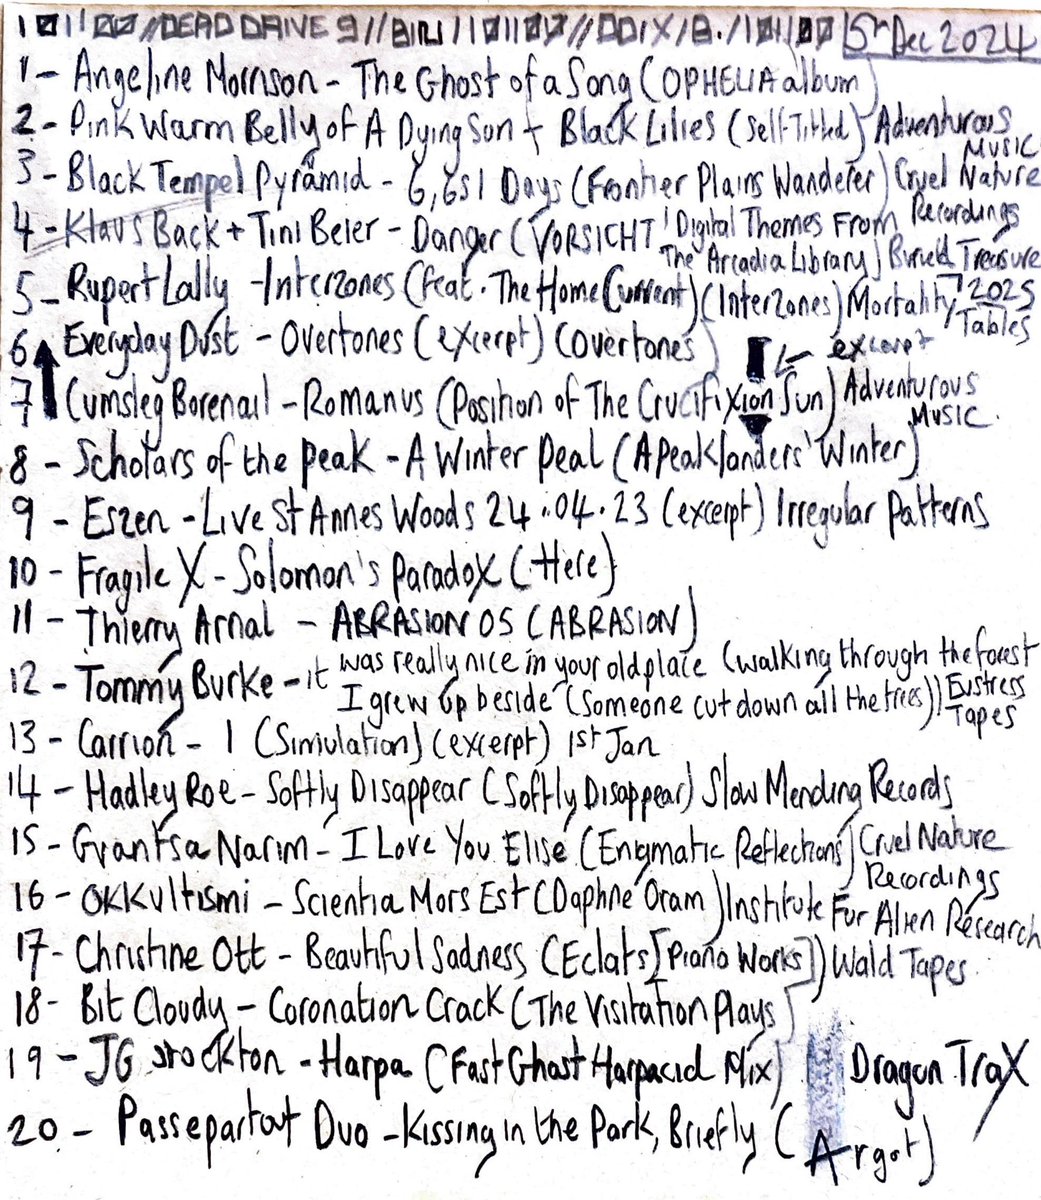 //DEAD DRIVE 9// 5th Dec 2024
1 - Angeline Morrison - The Ghost of a Song (OPHELIA album)
2 - Pink Warm Belly of A Dying Sun + Black Lilies (Self-Titled) Adventurous Music
3 - Black Tempel Pyrämid - 6,651 Days (Frontier Plains Wanderer) Cruel Nature Recordings
4 - Klaus Back + Tini Beier - Danger (VORSICHT! Digital Themes From The Arcadia Library) Buried Treasure
5 - Rupert Lally - Interzones (feat. The Home Current) (Interzones) Mortality Tables 2025
6 - Everyday Dust - Overtones (excerpt) (Overtones) excerpt
7 - Cumsleg Borenail - Romanus (Position of The Crucifixion Sun) Adventurous Music.
8 - Scholars of the Peak - A Winter Peal (A Peaklanders' Winter)
9 - Eszen - Live St Annes Woods 24.04.23 (excerpt) Irregular Patterns
10 - Fragile X - Solomon's Paradox (Here)
11 - Thierry Arnal - ABRASION 05 (ABRASION)
12 - Tommy Burke - it was really nice in your old place (walking through the forest I grew up beside (someone cut down all the trees)) Eustress Tapes
13 - Carrion - 1 (Simulation) (excerpt) 1st Jan
14 - Hadley Roe - Softly Disappear (Softly Disappear) Slow Mending Records
15 - Gvantsa Narim - I Love You Elise (Enigmatic Reflections) Cruel Nature Recordings
16 - OKKultismi - Scientia Mors Est (Daphne Oram) Institute For Alien Research
17 - Christine Ott - Beautiful Sadness (Eclats [Piano Works]) Wald Tapes
18 - Bit Cloudy - Coronation Crack (The Visitation Plays)
19 - JG Stockton - Harpa (Fast Ghost Harpacid Mix) Dragon TraX
20 - Passepartout Duo - Kissing in the Park, Briefly (Argot)